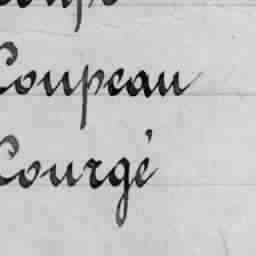 Coupeau
Courgé